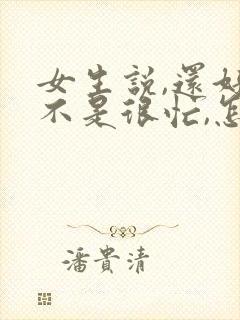 女生說,還好
不是很忙,怎
潘貴清